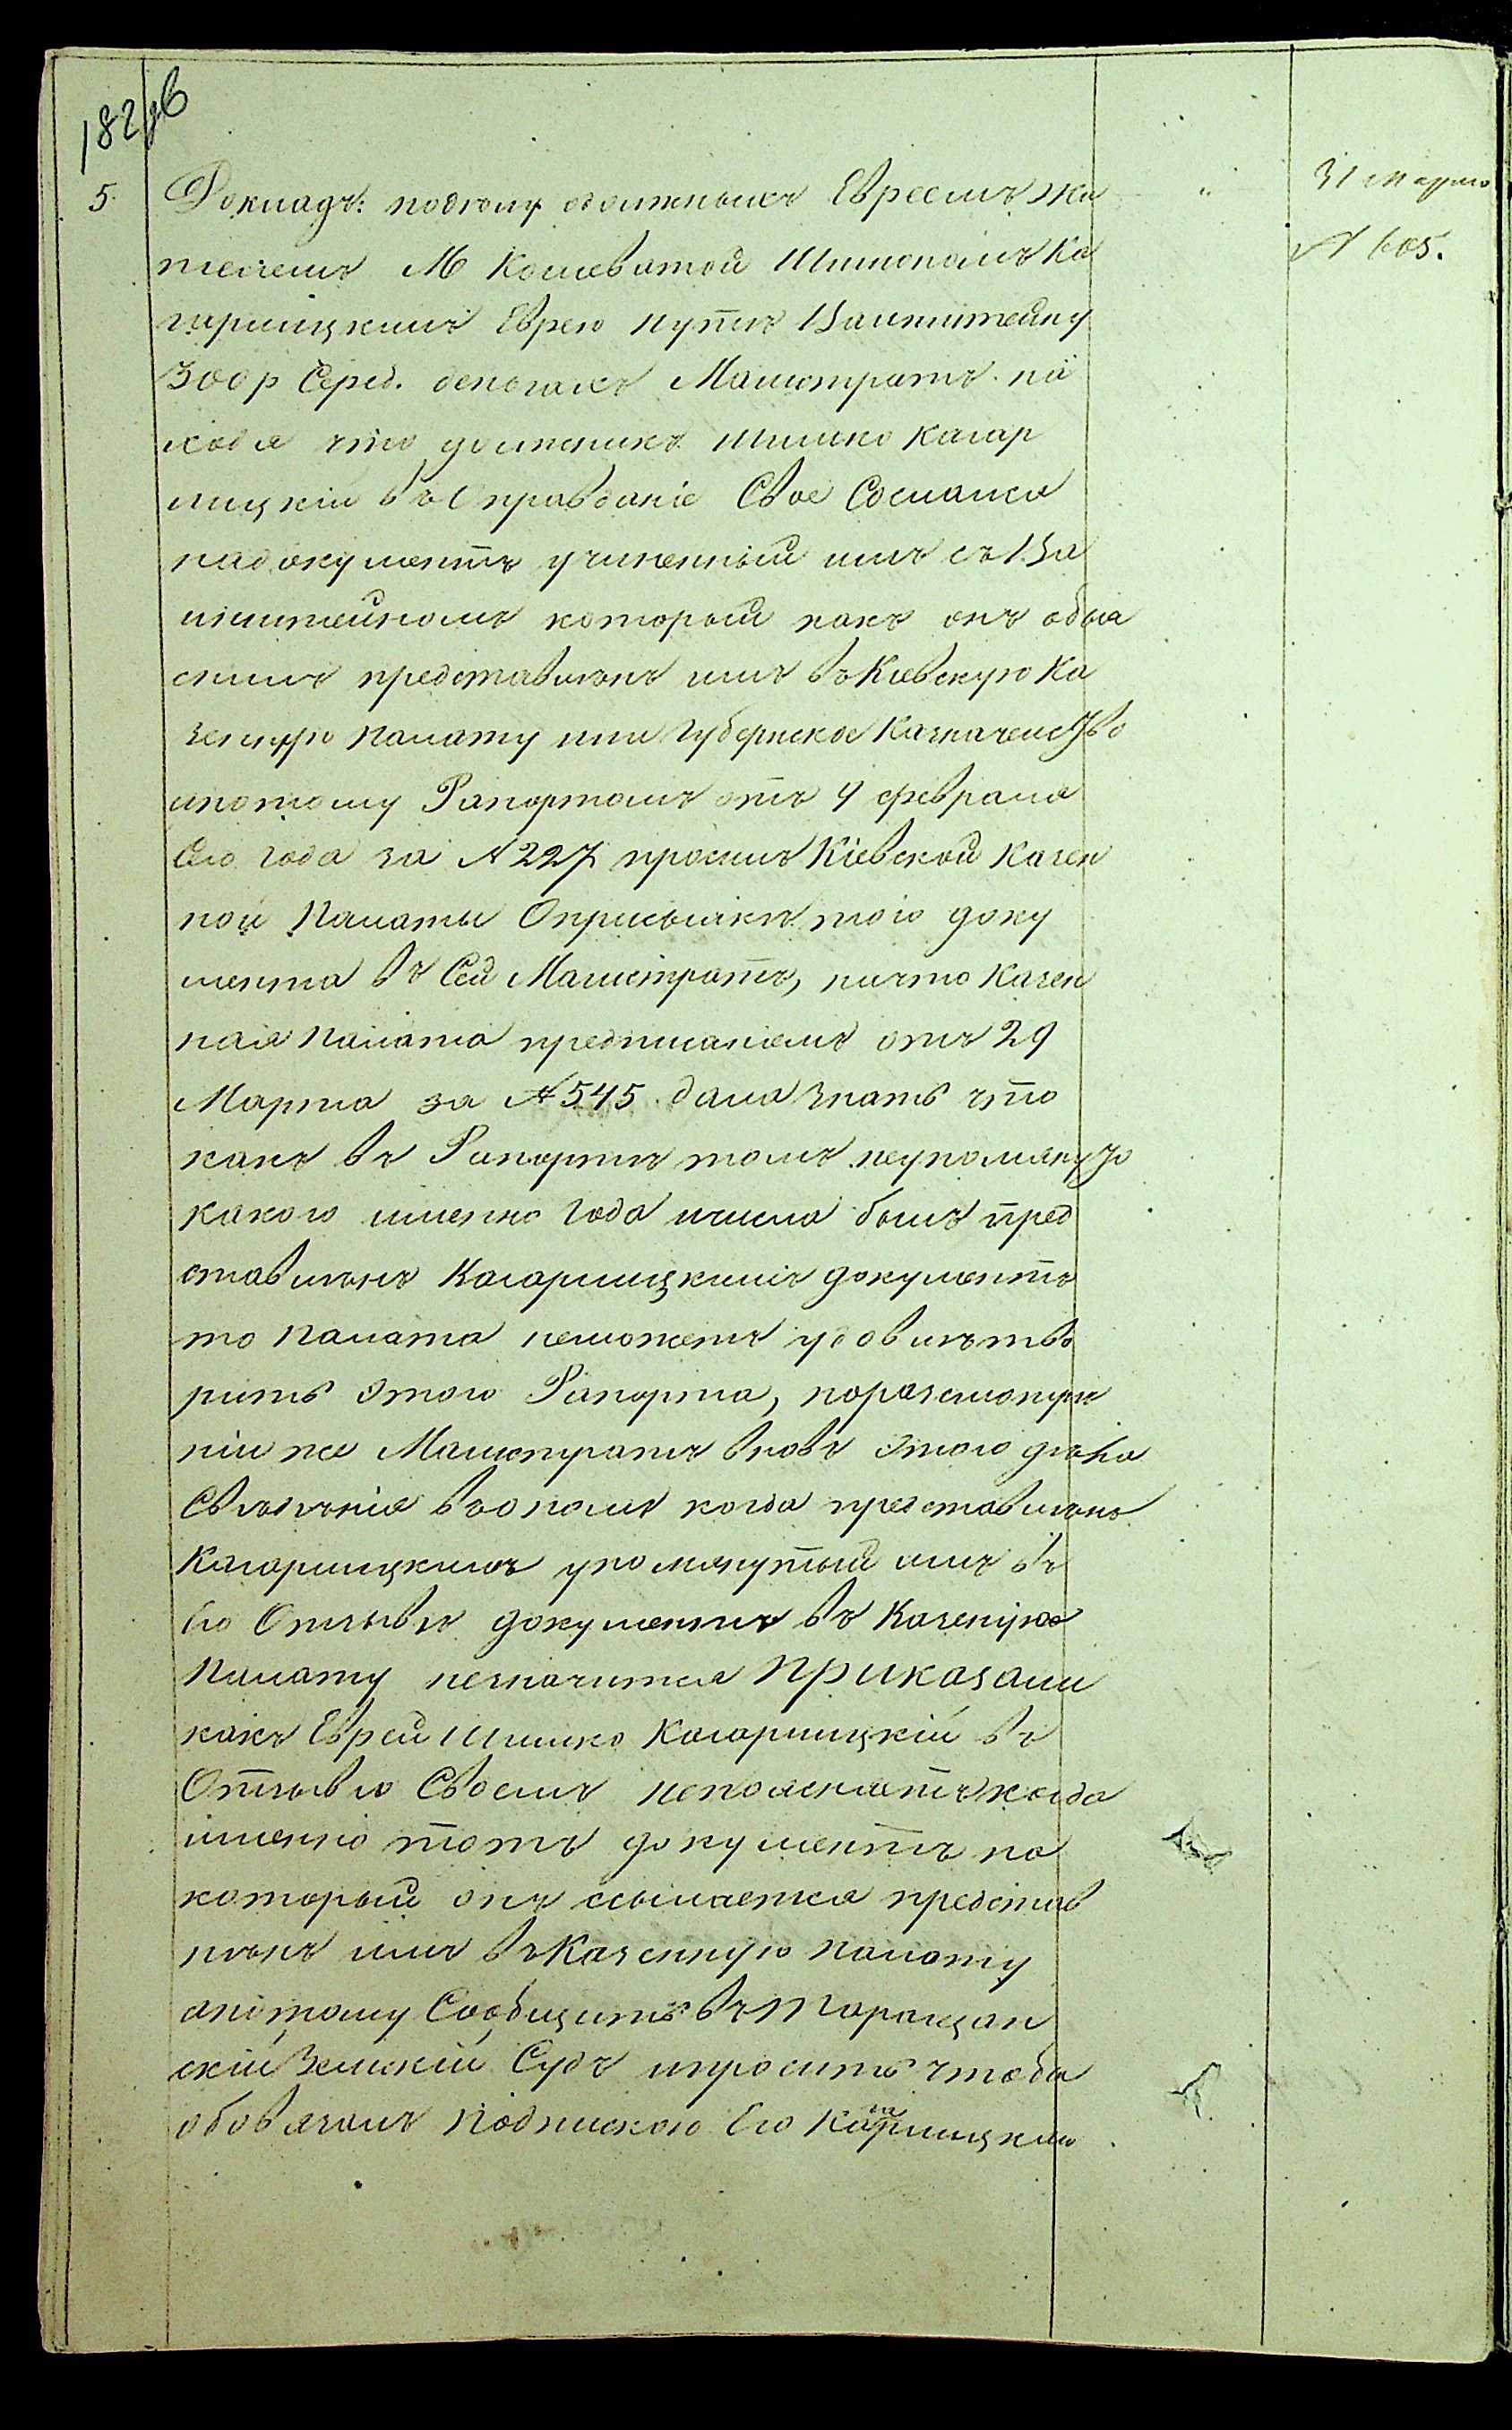 182 об
5. Докладъ: подѣлу одолжныхъ Евреемъ жи 31 Марта
телемъ М Кошеватой Шимономъ Ка № 605.
гарлицкимъ Еврею Нутѣ Ваинштейну
300 р Сереб. деньгахъ Магистратъ на
ходя что должникъ Шимко Кагар
лицкій въ Оправданіе Свое Сослался
надокументъ учиненный имъ съ Ва
инштейномъ который какъ онъ объя
снилъ представленъ имъ въ Кіевскую Ка
зенную Палату или Губернское Казначейство
ипотому Рапортомъ отъ 4 февраля
Сего года за № 227 просилъ Кіевской Казен
ной Палаты Оприсылкѣ того доку
мента въ Сей Магистратъ, начто Казен
ная Палата предписаніемъ отъ 29
Марта за № 545 дала знать что
какъ въ Рапортѣ томъ неупомянуто
какого именно Года ичисла былъ пред
ставленъ Кагарлицкимъ документъ
то Палата неможетъ удовлетво
рить этого Рапорта, поразсмотрѣ
ніи же Магистратъ вновь этого дѣла
Свѣденія въономъ когда представленъ
Кагарлицкимъ упомянутый имъ въ
Его Отзывѣ документъ въ Казенную
Палату незначится Приказали
какъ Еврей Шимко Кагарлицкій въ
Отзывѣ Своемъ непоясняетъ когда
именно тотъ документъ на
который онъ ссылается представ
ленъ имъ въ Казенную Палату
апотому Сообщить въ Таращан
скій Земскій Судъ ипросить чтобы
обовязалъ Подпискою Его Кагарлицкаго